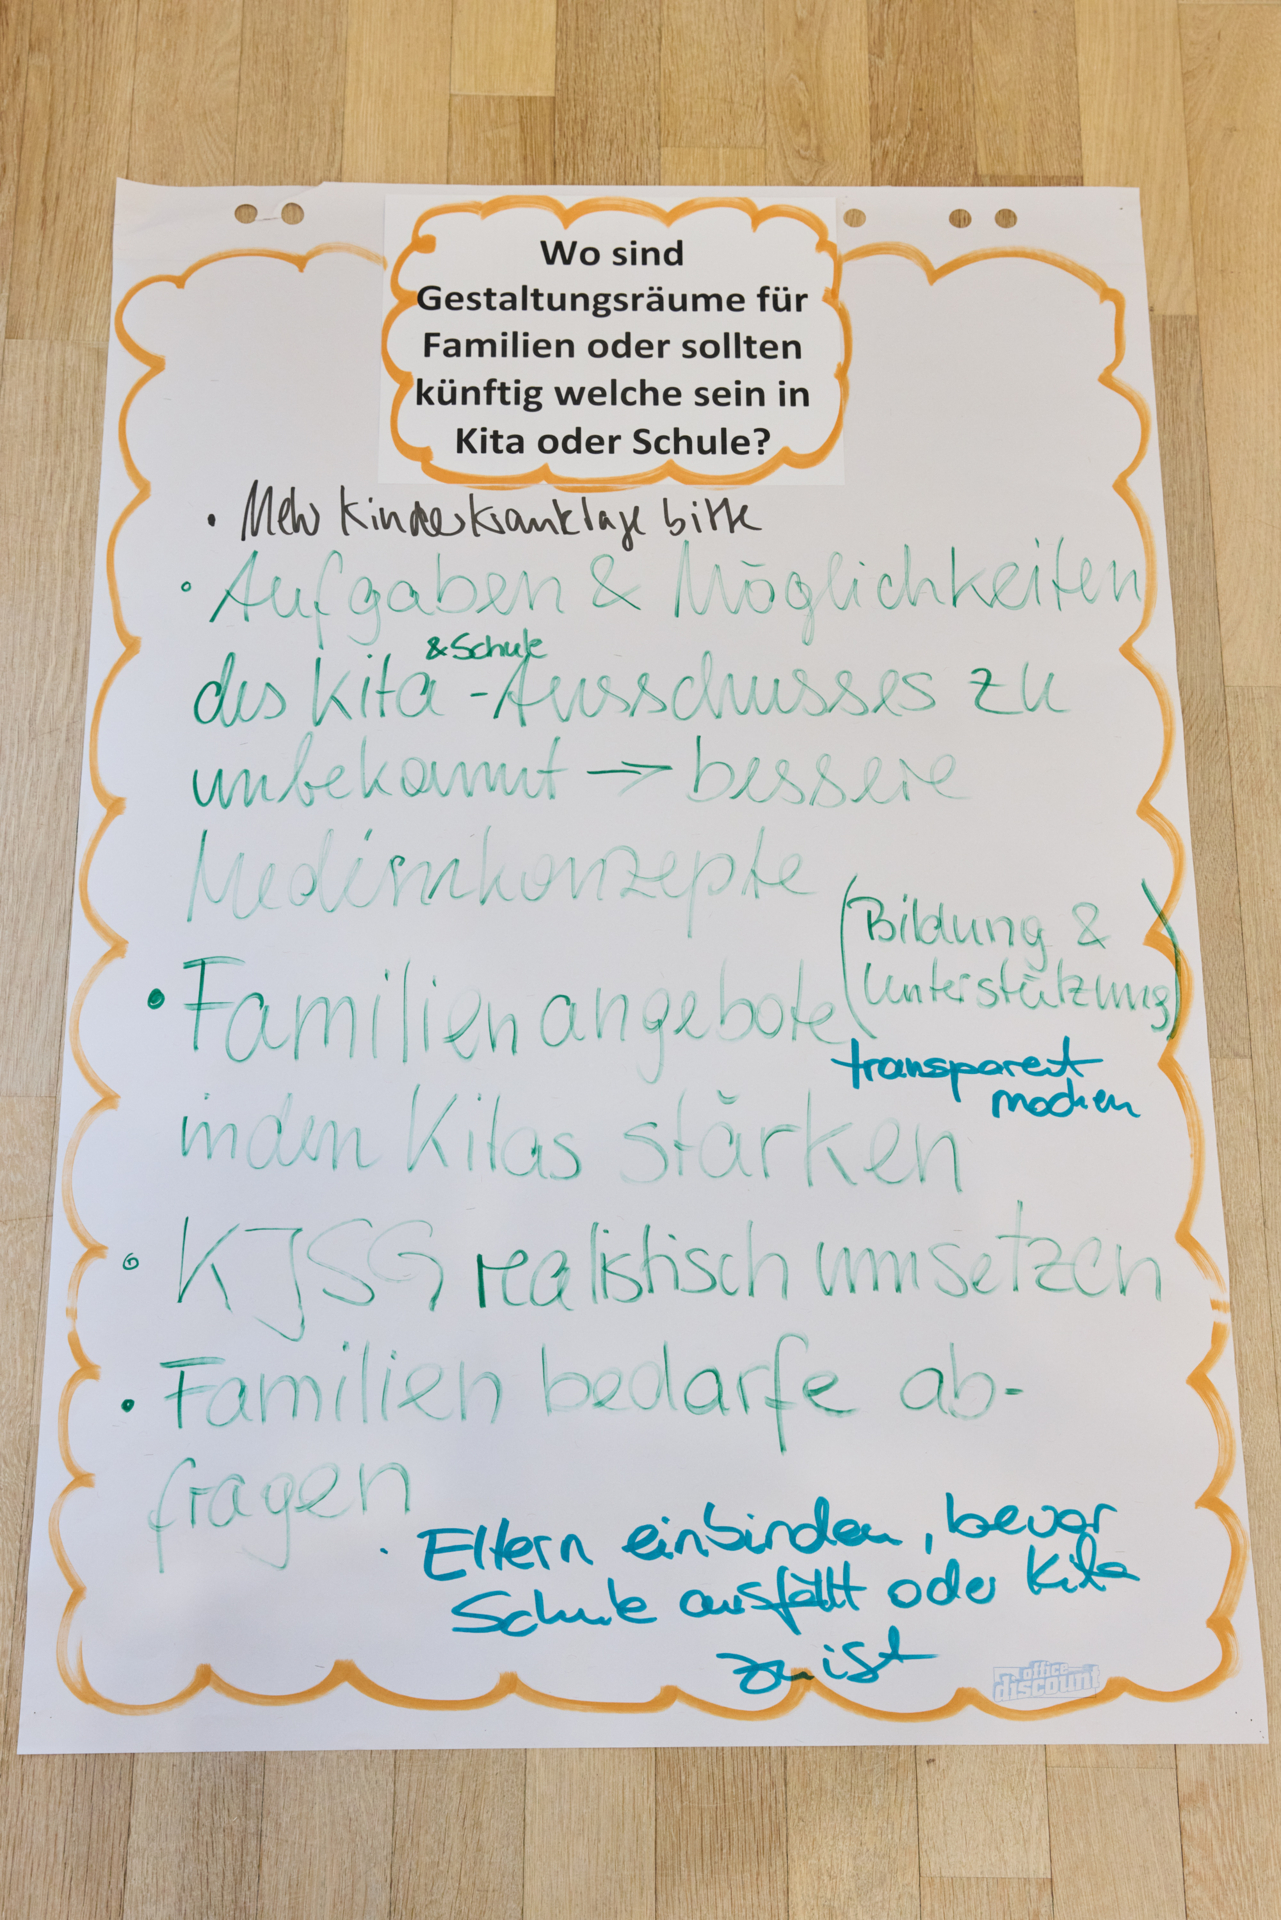 Wo sind
Gestaltungsräume für
Familien oder sollten
künftig welche sein in
Kita oder Schule?
• Mehr Kinderkranktage bitte
• Aufgaben & Möglichkeiten
& Schule
des Kita-Ausschusses zu
unbekannt → bessere
Medienkonzepte
(Bildung &
Unterstützung)
• Familienangebote
transparent
machen
in den Kitas stärken
• KJSG realistisch umsetzen
• Familienbedarfe ab-
fragen
• Eltern einbinden, bevor
Schule ausfällt oder Kita
zu ist
office
discount